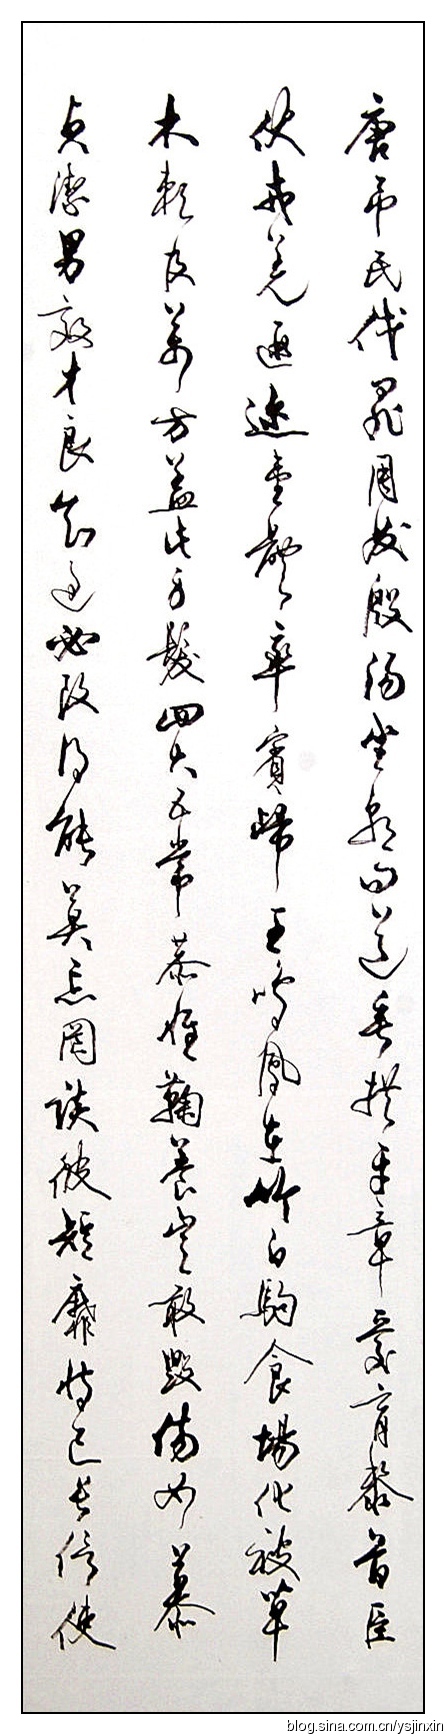 唐吊民伐罪周發殷湯坐朝問道垂拱平章愛育黎首臣
伏戎羌遐邇壹體率賓歸王鳴鳳在竹白駒食場化被草
木賴及萬方蓋此身髮四大五常恭惟鞠養豈敢毀傷女慕
貞潔男效才良知過必改得能莫忘罔談彼短靡恃己長信使
blog.sina.com.cn/ysjinxin